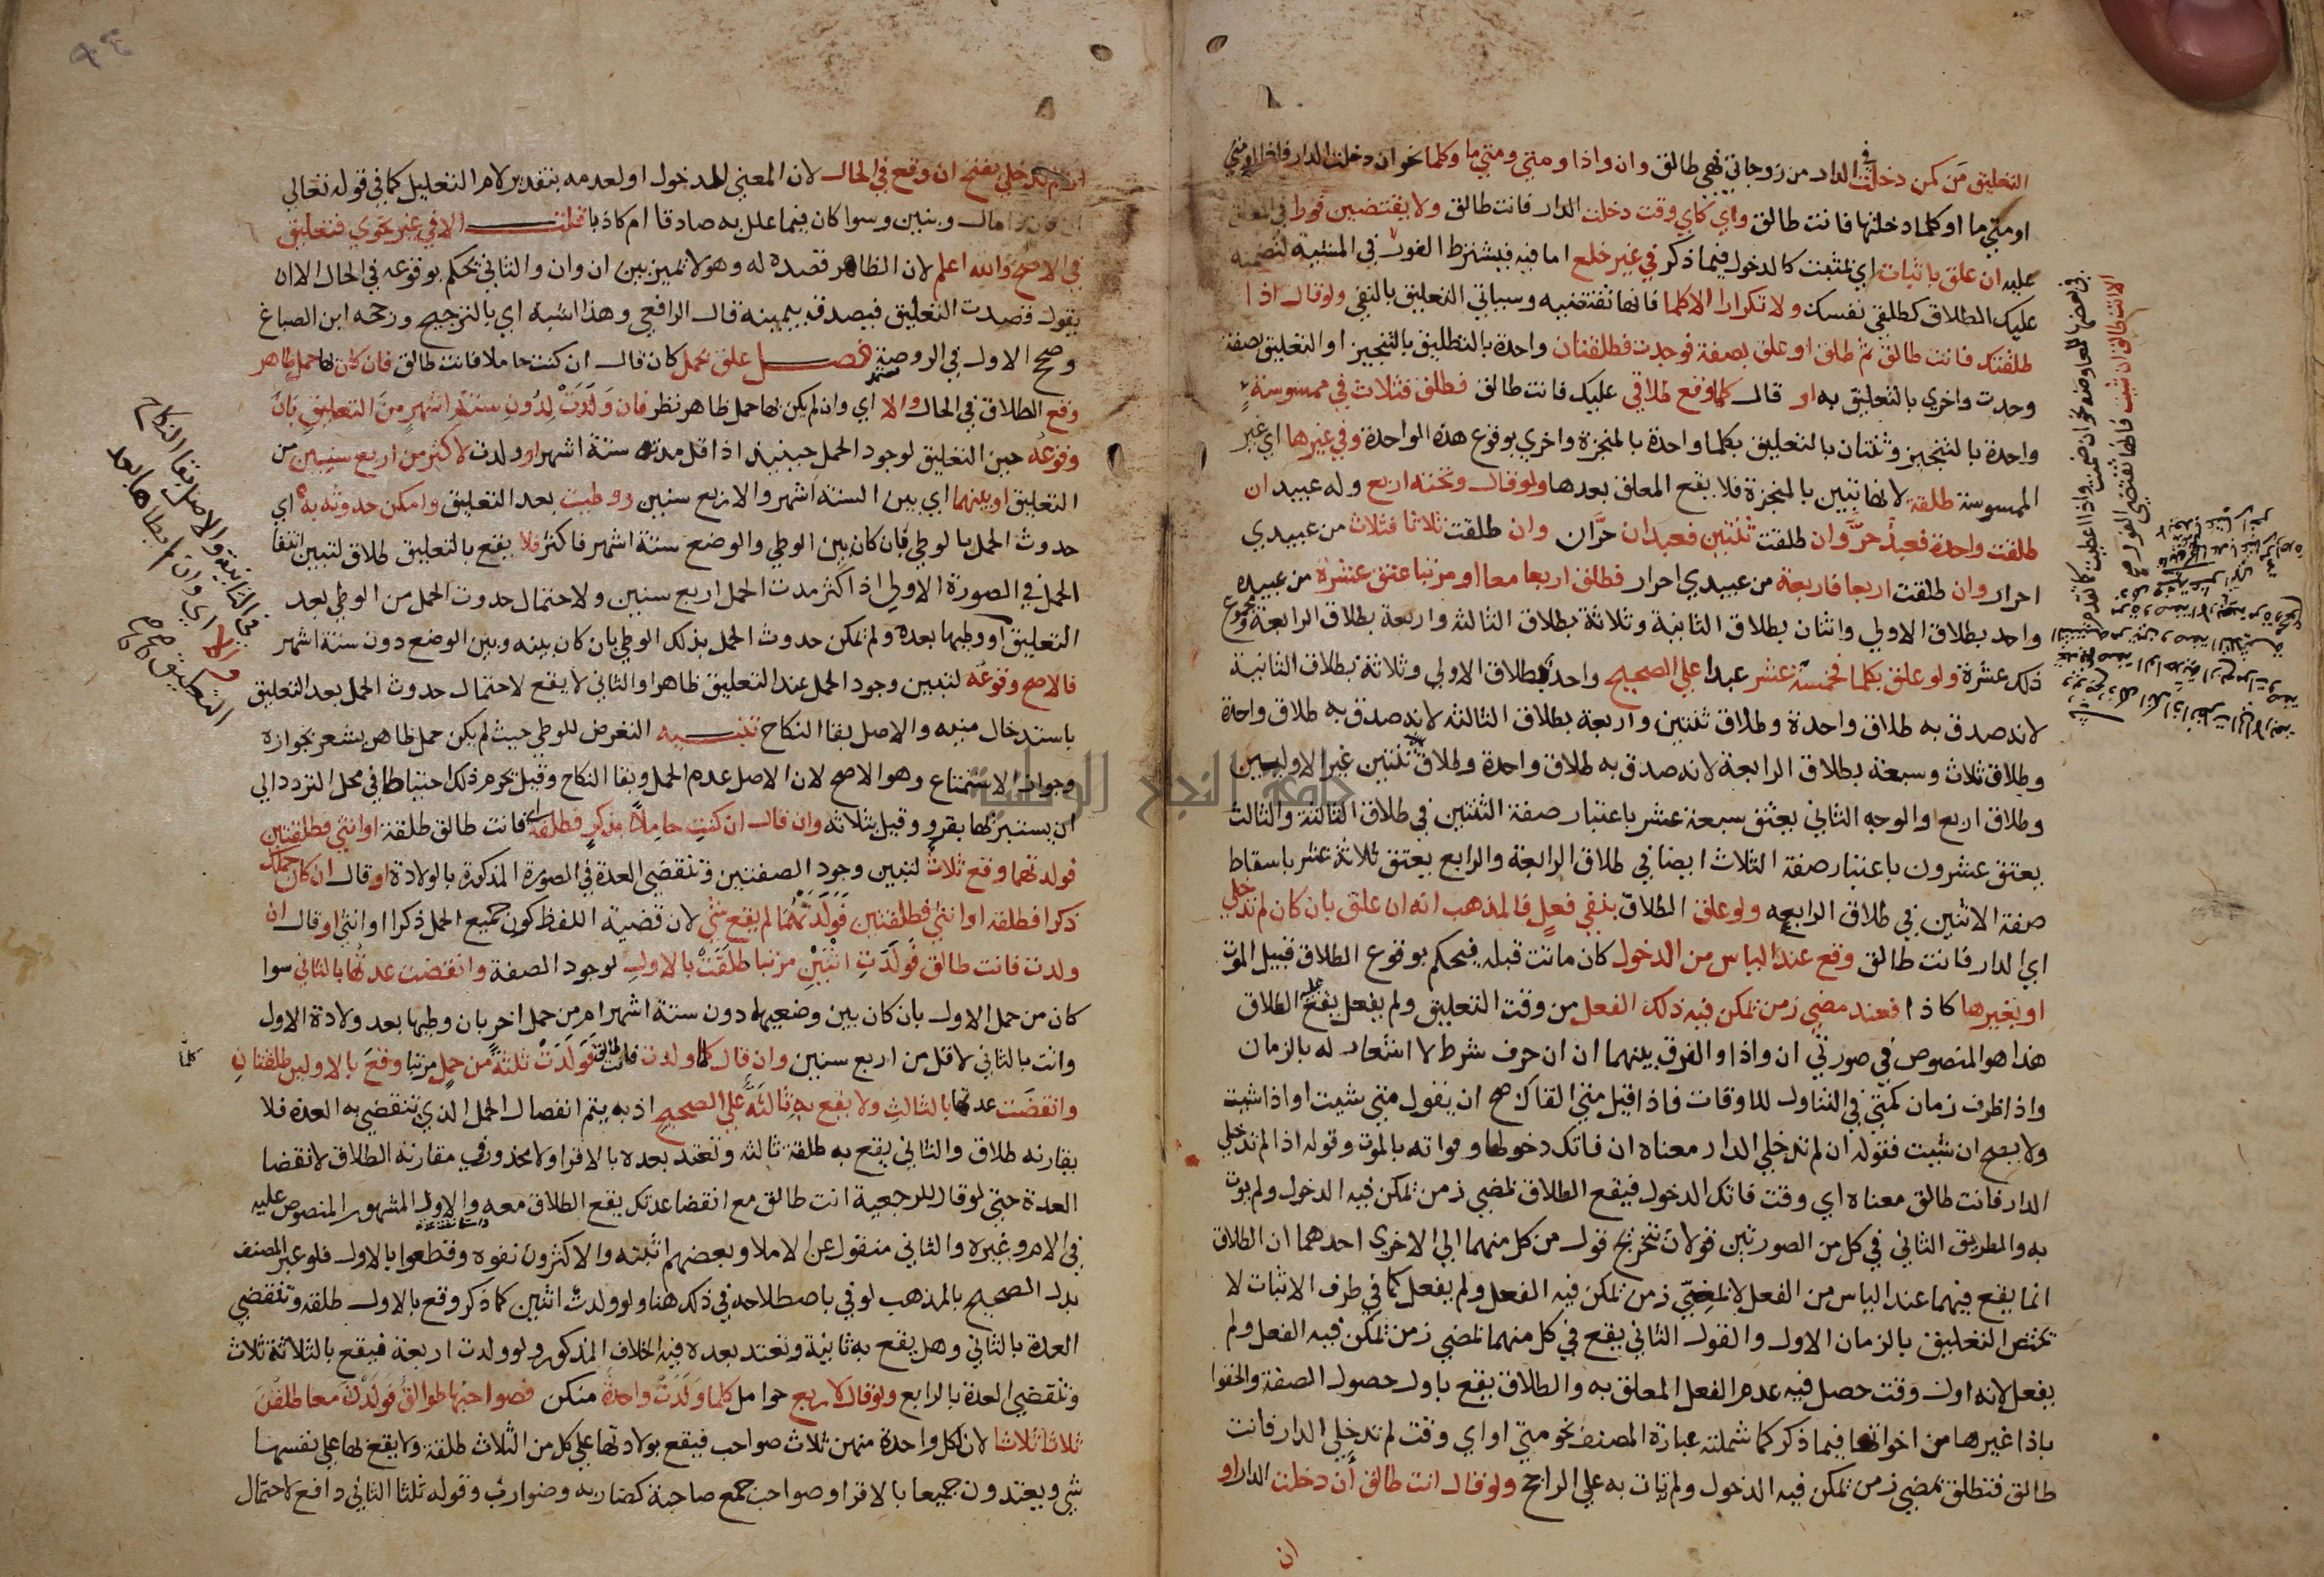 التعليق مَن كمن دخلت الدار من زوجاتي فهي طالق وان واذا ومتي ومتي ما وكلما نحو ان دخلت الدار او اذا او متي
او متي ما او كلما دخلتها فانت طالق واي كاي وقت دخلت الدار فانت طالق ولا يقتضين فورا في المعلق
عليه ان علق باثبات اي بمثبت كالدخول فيما ذكر في غير خلع اما فيه فيشترط الفور في المشية لتضمنه
عليك الطلاق كطلقي نفسك ولا تكرارا الا كلما فانها تقتضيه وسياتي التعليق بالنفي ولو قال اذا
طلقتك فانت طالق ثم طلق او علق بصفة فوجدت فطلقتان واحدة بالتطليق بالتنجيز او التعليق بصفة
وجدت واخري بالتعليق به او قال كلما وقع طلاقي عليك فانت طالق فطلق فثلاث في ممسوسة
واحدة بالتنجيز وثنتان بالتعليق بكلما واحدة بالمنجزة واخري بوقوع هذه الواحدة وفي غيرها اي غير
الممسوسة طلقة لانها تبين بالمنجزة فلا يقع المعلق بعدها ولو قال وتحته اربع وله عبيد ان
طلقت واحدة فعبد حرَّ وان طلقت ثنتين فعبدان حرَّان وان طلقت ثلاثا فثلاث من عبيدي
احرار وان طلقت اربعا فاربعة من عبيدي احرار فطلق اربعا معا او مرتبا عتق عشرة من عبيده
واحد بطلاق الاولي واثنان بطلاق الثانية وثلاثة بطلاق الثالثة واربعة بطلاق الرابعة ومجموع
ذلك عشرة ولو علق بكلما فخمسة عشر عبدا علي الصحيح واحد بطلاق الاولي وثلاثة بطلاق الثانية
لانه صدق به طلاق واحدة وطلاق ثنتين واربعة بطلاق الثالثة لانه صدق به طلاق واحدة
وطلاق ثلاث وسبعة بطلاق الرابعة لانه صدق به طلاق واحدة وطلاق ثنتين غير الاوليين
وطلاق اربع والوجه الثاني يعتق سبعة عشر باعتبار صفة الثنتين في طلاق الثالثة والثالث
يعتق عشرون باعتبار صفة الثلاث ايضا في طلاق الرابعة والرابع يعتق ثلاثة عشر باسقاط
صفة الاثنين في طلاق الرابعه ولو علق الطلاق بنفي فعل فالمذهب انه ان علق بان كان لم تدخلي
اي الدار فانت طالق وقع عند الياس من الدخول كان ماتت قبله فيحكم بوقوع الطلاق قبيل الموت
او بغيرها كاذا فعند مضي زمن يمكن فيه ذلك الفعل من وقت التعليق ولم يفعل يقع الطلاق
هذا هو المنصوص في صورتي ان واذا والفرق بينهما ان ان حرف شرط لا اشعار له بالزمان
واذا ظرف زمان كمتي في التناول للاوقات فاذا قيل متي القاك صح ان يقول متي شيت او اذا شيت
ولا يصح ان شيت فقوله ان لم تدخلي الدار معناه ان فاتك دخولها وفواته بالموت وقوله اذا لم تدخلي
الدار فانت طالق معناه اي وقت فاتك الدخول فيقع الطلاق بمضي زمن يمكن فيه الدخول ولم يوت
به والطريق الثاني في كل من الصورتين قولان بتخريج قول من كل منهما الي الاخري احدهما ان الطلاق
انما يقع فيهما عند الياس من الفعل لا بمضي زمن يمكن فيه الفعل ولم يفعل كما في طرف الاثبات لا
يختص التعليق بالزمان الاول والقول الثاني يقع في كل منهما بمضي زمن يمكن فيه الفعل ولم
يفعل لانه اول وقت حصل فيه عدم الفعل المعلق به والطلاق يقع باول حصول الصفة والحقوا
باذا غيرها من اخواتها فيما ذكر كما شملته عبارة المصنف نحو متي او اي وقت لم تدخلي الدار فانت
طالق فتطلق بمضي زمن يمكن فيه الدخول ولم تات به علي الراجح ولو قال انت طالق أن دخلت الدار او
ان
الا انت طالق ان شيت فانها تقتضي الفور
ان لم تدخلي بفتح ان وقع في الحال لان المعني للدخول او لعدمه بتقدير لام التعليل كما في قوله تعالي
ان كان ذا مال وبنين وسوا كان فيما علل به صادقا ام كاذبا قلت الا في غير نحوي فتعليق
في الاصح والله اعلم لان الظاهر قصده له وهو لا تمييز بين ان وان والثاني يحكم بوقوعه في الحال الا ان
يقول قصدت التعليق فيصدق بيمينه قال الرافعي وهذا اشبه اي بالترجيح ورجحه ابن الصباغ
وصحح الاول في الروضة فصل علق بحمل كان قال ان كنت حاملا فانت طالق فان كان بها حمل ظاهر
وقع الطلاق في الحال والا اي وان لم يكن بها حمل ظاهر نظر فان وَلَدَتْ لِدُونِ ستة اشهر منَ التعليقِ بَانَ
وقوعُه حين التعليق لوجود الحمل حينيذ اذ اقل مدته ستة اشهر او ولدت لاكثر من اربع سنيين من
التعليق او بينهما اي بين الستة اشهر والاربع سنين ووطيت بعد التعليق وامكن حدوثه به اي
حدوث الحمل بالوطي بان كان بين الوطي والوضع ستة اشهر فاكثر فلا يقع بالتعليق طلاق لتبين انتفا
الحمل في الصورة الاولي اذ اكثر مدت الحمل اربع سنين ولاحتمال حدوث الحمل من الوطي بعد
التعليق او وطيها بعده ولم يمكن حدوث الحمل بذلك الوطي بان كان بينه وبين الوضع دون ستة اشهر
فالاصح وقوعُه لتبين وجود الحمل عند التعليق ظاهرا والثاني لا يقع لاحتمال حدوث الحمل بعد التعليق
باستدخال منيه والاصل بقا النكاح تنبيه التعرض للوطي حيث لم يكن حمل ظاهر يشعر بجوازه
وجواز الاستمتاع وهو الاصح لان الاصل عدم الحمل وبقا النكاح وقيل يحرم ذلك احتياطا في محل التردد الي
ان يستبريها بقرو وقيل بثلاثه وان قال ان كنتِ حاملًا بذكرٍ فطلقة اي فانت طالق طلقة او انثي فطلقتين
فولدتهما وقع ثلاثٌ لتبيين وجود الصفتين وتنقضي العدة في الصورة المذكورة بالولادة او قال ان كان حملك
ذكرا فطلقه او انثي فطلقتين فَوَلَدَتْهُمَا لم يقع شي لان قضية اللفظ كون جميع الحمل ذكرا او انثي او قال ان
ولدت فانت طالق فَوَلَدَتِ اثْنَيْنِ مرتبا طلقَتْ بالاولِ لوجود الصفة وانقضت عدتها بالثاني سوا
كان من حمل الاول بان كان بين وضعيهما دون ستة اشهر ام من حمل اخر بان وطيها بعد ولادة الاول
واتت بالثاني لاقل من اربع سنين وان قال كلما ولدت فانت طالق فَوَلَدَتْ ثلثةً من حملٍ مرتبا وقعَ بالاولين طلقتانِ
كلمّا
وانقضَت عدتها بالثالثِ ولا يقع به ثالثَة علي الصحيح اذ به يتم انفصال الحمل الذي تنقضي به العدة فلا
يقارنه طلاق والثاني يقع به طلقة ثالثه وتعتد بعده بالاقرا ولا محذور في مقارنة الطلاق لانقضا
العدة حتي لو قال للرجعية انت طالق مع انقضا عدتك يقع الطلاق معه والاول المشهور المنصوص عليه
في الام وغيره والثاني منقول عن الاملا وبعضهم اثبته والاكثرون نفوه وقطعوا بالاول فلو عبر المصنف
بدل الصحيح بالمذهب لوفي باصطلاحه في ذلك هنا ولو ولدت اثنين كما ذكر وقع بالاول طلقه وتنقضي
العدة بالثاني وهل يقع به ثانية وتعتد بعده فيه الخلاف المذكور ولو ولدت اربعة فيقع بالثلاثة ثلاث
وتنقضي العدة بالرابع ولو قال لاربع حوامل كلما وَلَدَتْ واحدةٌ منكن فصواحبُها طوالقُ فَولَدْنَ معا طلقنَ
ثلاثا ثلاثا لان لكل واحدة منهن ثلاث صواحب فيقع بولادتها علي كل من الثلاث طلقة ولا يقع بها علي نفسها
شي ويعتددن جميعا بالاقرا وصواحب جمع صاحبة كضاربه وضوارب وقوله ثلثا الثاني دافع لاحتمال